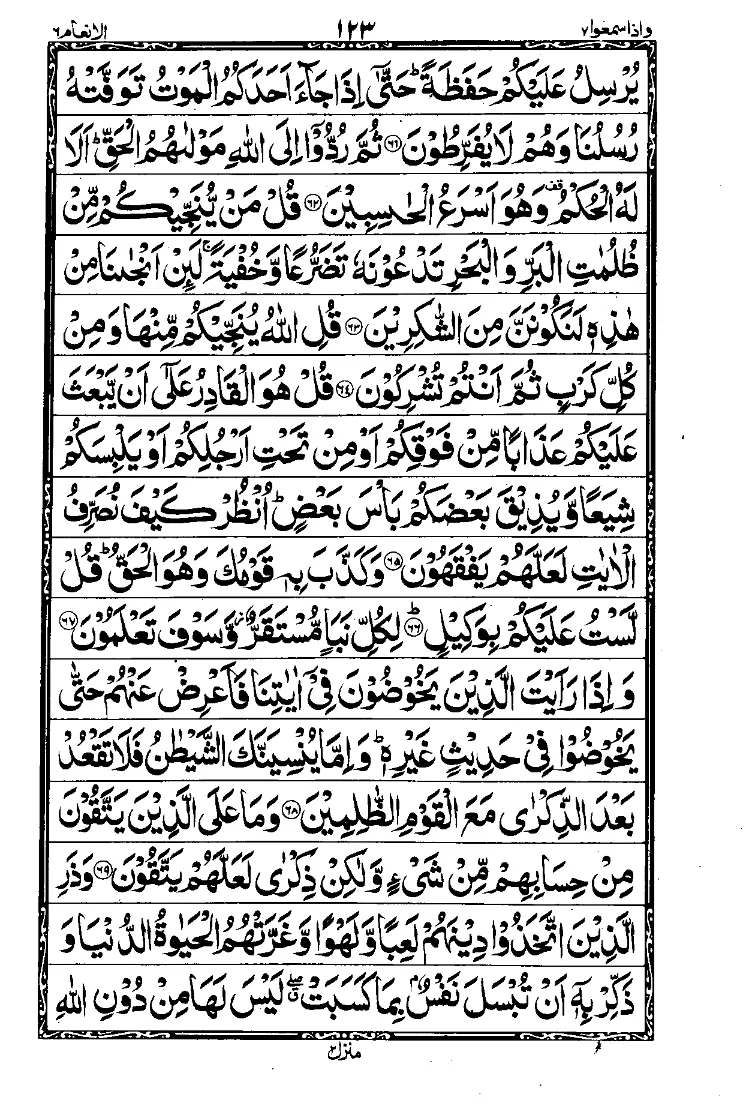 واذاسمعوا۷ ۱۲۳ الانعام۶
يُرْسِلُ عَلَيْكُمْ حَفَظَةً ؕ حَتّٰۤى اِذَا جَآءَ اَحَدَكُمُ الْمَوْتُ تَوَفَّتْهُ
رُسُلُنَا وَهُمْ لَا يُفَرِّطُوْنَ ﴿۶۱﴾ ثُمَّ رُدُّوْۤا اِلَى اللّٰهِ مَوْلٰىهُمُ الْحَقِّ ؕ اَلَا
لَهُ الْحُكْمُ ۫ وَهُوَ اَسْرَعُ الْحٰسِبِيْنَ ﴿۶۲﴾ قُلْ مَنْ يُّنَجِّيْكُمْ مِّنْ
ظُلُمٰتِ الْبَرِّ وَ الْبَحْرِ تَدْعُوْنَهٗ تَضَرُّعًا وَّخُفْيَةً ۚ لَئِنْ اَنْجٰىنَا مِنْ
هٰذِهٖ لَنَكُوْنَنَّ مِنَ الشّٰكِرِيْنَ ﴿۶۳﴾ قُلِ اللّٰهُ يُنَجِّيْكُمْ مِّنْهَا وَمِنْ
كُلِّ كَرْبٍ ثُمَّ اَنْتُمْ تُشْرِكُوْنَ ﴿۶۴﴾ قُلْ هُوَ الْقَادِرُ عَلٰۤى اَنْ يَّبْعَثَ
عَلَيْكُمْ عَذَابًا مِّنْ فَوْقِكُمْ اَوْ مِنْ تَحْتِ اَرْجُلِكُمْ اَوْ يَلْبِسَكُمْ
شِيَعًا وَّ يُذِيْقَ بَعْضَكُمْ بَاْسَ بَعْضٍ ؕ اُنْظُرْ كَيْفَ نُصَرِّفُ
الْاٰيٰتِ لَعَلَّهُمْ يَفْقَهُوْنَ ﴿۶۵﴾ وَكَذَّبَ بِهٖ قَوْمُكَ وَهُوَ الْحَقُّ ؕ قُلْ
لَّسْتُ عَلَيْكُمْ بِوَكِيْلٍ ﴿۶۶﴾ؕ لِكُلِّ نَبَاٍ مُّسْتَقَرٌّ ؗ وَّسَوْفَ تَعْلَمُوْنَ ﴿۶۷﴾
وَ اِذَا رَاَيْتَ الَّذِيْنَ يَخُوْضُوْنَ فِيْۤ اٰيٰتِنَا فَاَعْرِضْ عَنْهُمْ حَتّٰى
يَخُوْضُوْا فِيْ حَدِيْثٍ غَيْرِهٖ ؕ وَ اِمَّا يُنْسِيَنَّكَ الشَّيْطٰنُ فَلَا تَقْعُدْ
بَعْدَ الذِّكْرٰى مَعَ الْقَوْمِ الظّٰلِمِيْنَ ﴿۶۸﴾ وَمَا عَلَى الَّذِيْنَ يَتَّقُوْنَ
مِنْ حِسَابِهِمْ مِّنْ شَيْءٍ وَّلٰكِنْ ذِكْرٰى لَعَلَّهُمْ يَتَّقُوْنَ ﴿۶۹﴾ وَذَرِ
الَّذِيْنَ اتَّخَذُوْا دِيْنَهُمْ لَعِبًا وَّلَهْوًا وَّغَرَّتْهُمُ الْحَيٰوةُ الدُّنْيَا وَ
ذَكِّرْ بِهٖۤ اَنْ تُبْسَلَ نَفْسٌۢ بِمَا كَسَبَتْ ۖ لَيْسَ لَهَا مِنْ دُوْنِ اللّٰهِ
منزل۲